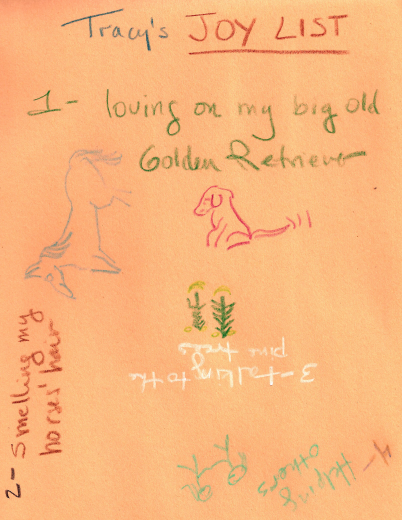 Tracy's JOY LIST
1- loving on my big old
Golden Retriever
2- smelling my
horses' hair
3-talking to the
pine trees
4- Helping
others